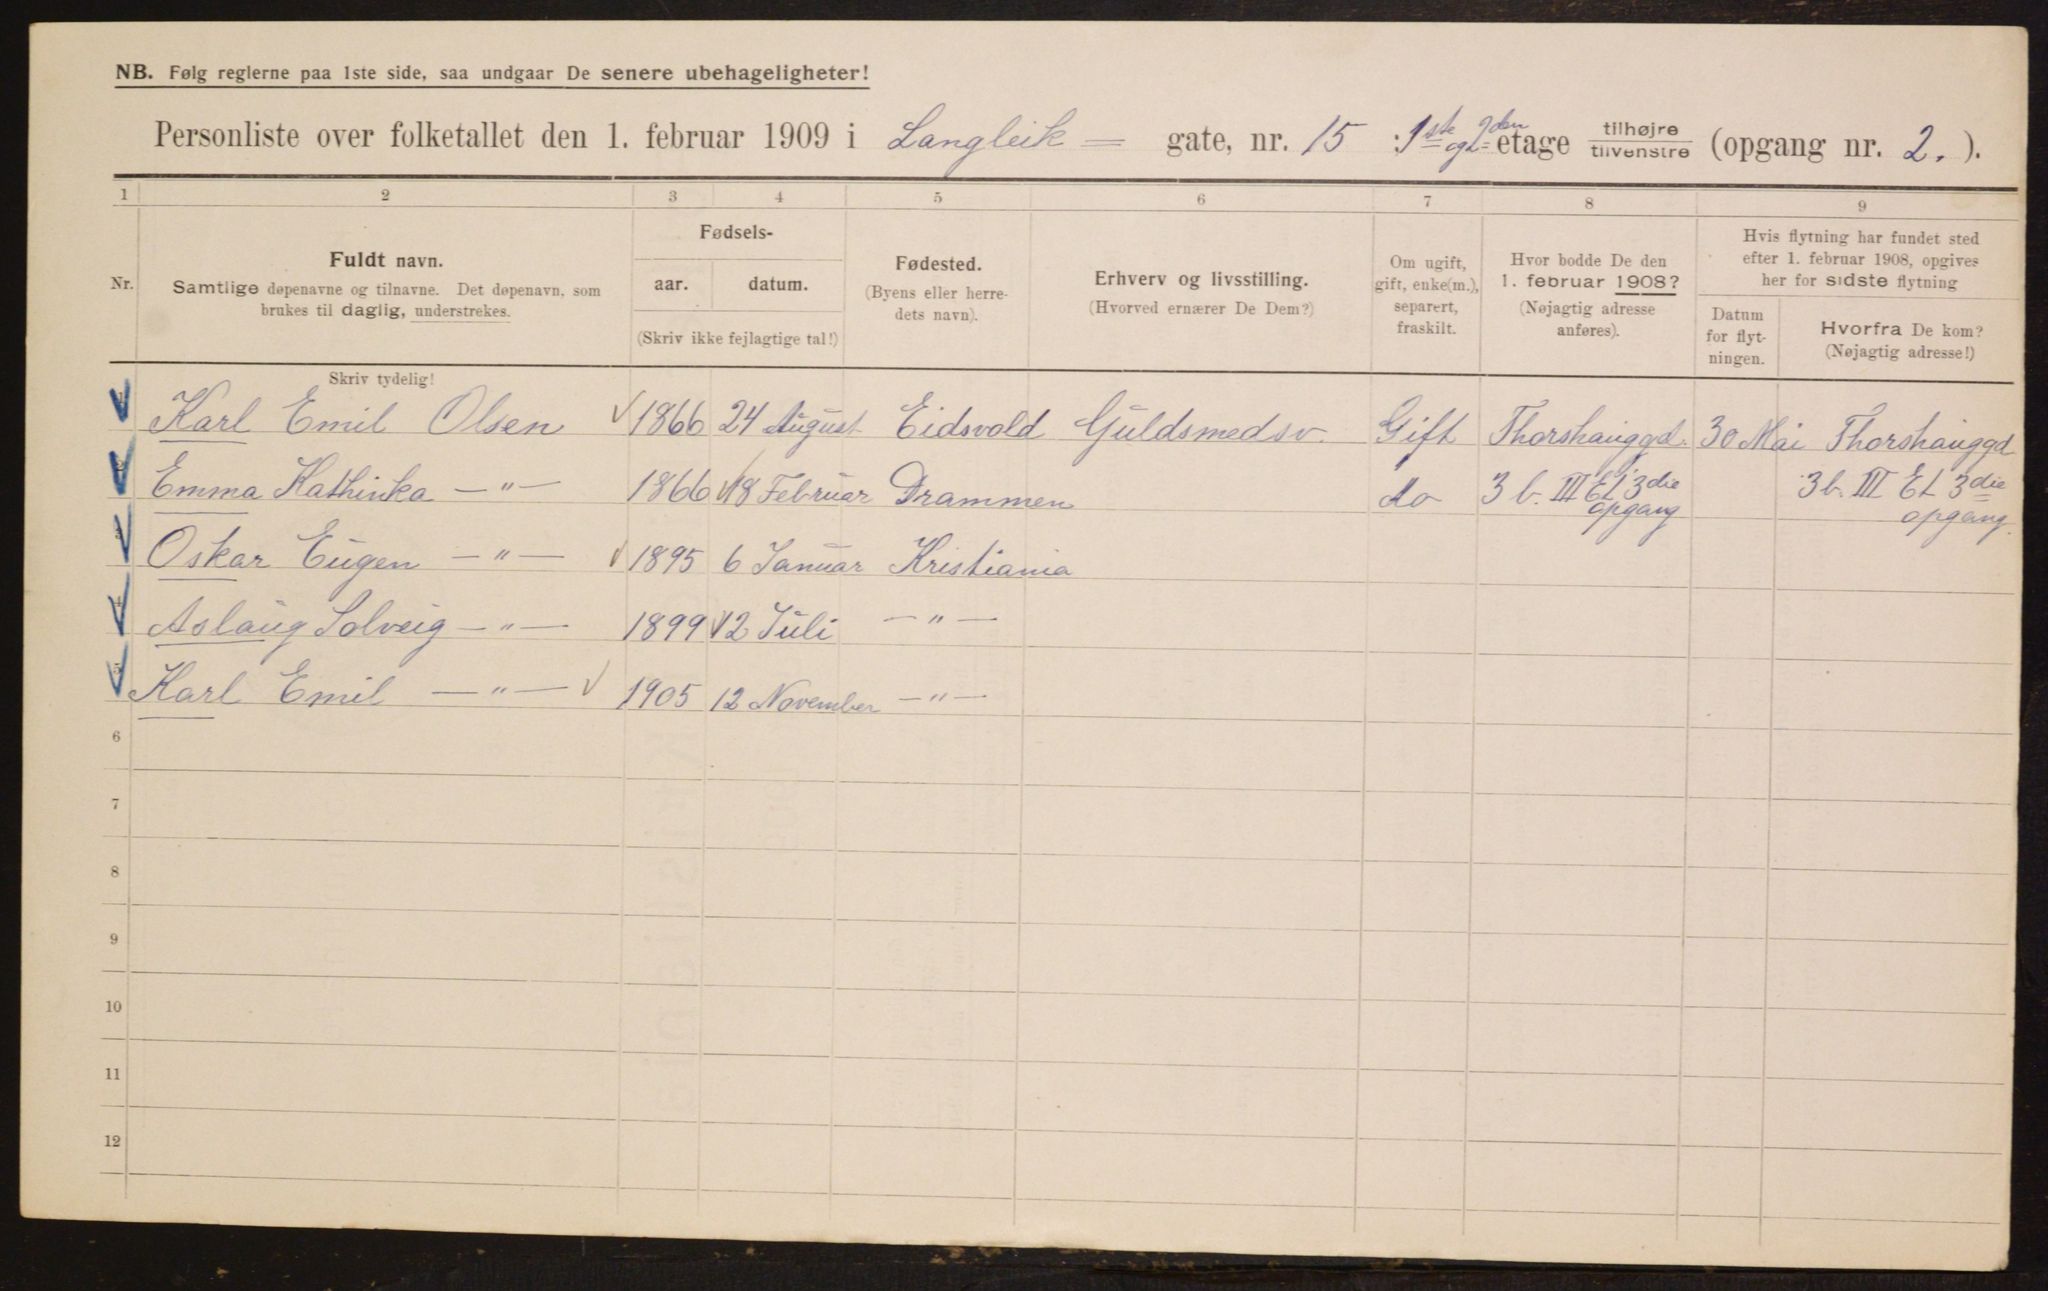 NB. Følg reglerne paa 1ste side, saa undgaar De senere ubehageligheter!
Personliste over folketallet den 1. februar 1909 i Langleik = gate, nr. 15 : 1ste og 2den etage tilhøjre tilvenstre (opgang nr. 2. ).
1 2 3 4 5 6 7 8 9
Nr.
Fuldt navn.
Samtlige døpenavne og tilnavne. Det døpenavn, som
brukes til daglig, understrekes.
Skriv tydelig!
Fødsels-
aar. datum.
(Skriv ikke fejlagtige tal!)
Fødested.
(Byens eller herre-
dets navn).
Erhverv og livsstilling.
(Hvorved ernærer De Dem?)
Om ugift,
gift, enke(m.),
separert,
fraskilt.
Hvor bodde De den
1. februar 1908?
(Nøjagtig adresse
anføres).
Hvis flytning har fundet sted
efter 1. februar 1908, opgives
her for sidste flytning
Datum
for flyt-
ningen.
Hvorfra De kom?
(Nøjagtig adresse!)
1 Karl Emil Olsen 1866 24 August Eidsvold Guldsmedsv. Gift Thorshauggd. 30 Mai Thorshauggd
2 Emma Kathinka —"— 1866 18 Februar Drammen do 3 b. III Et 3die opgang 3 b. III Et 3die opgang.
3 Oskar Eugen —"— 1895 6 Januar Kristiania
4 Aslaug Solveig —"— 1899 12 Juli —"—
5 Karl Emil —"— 1905 12 November —"—
6
7
8
9
10
11
12